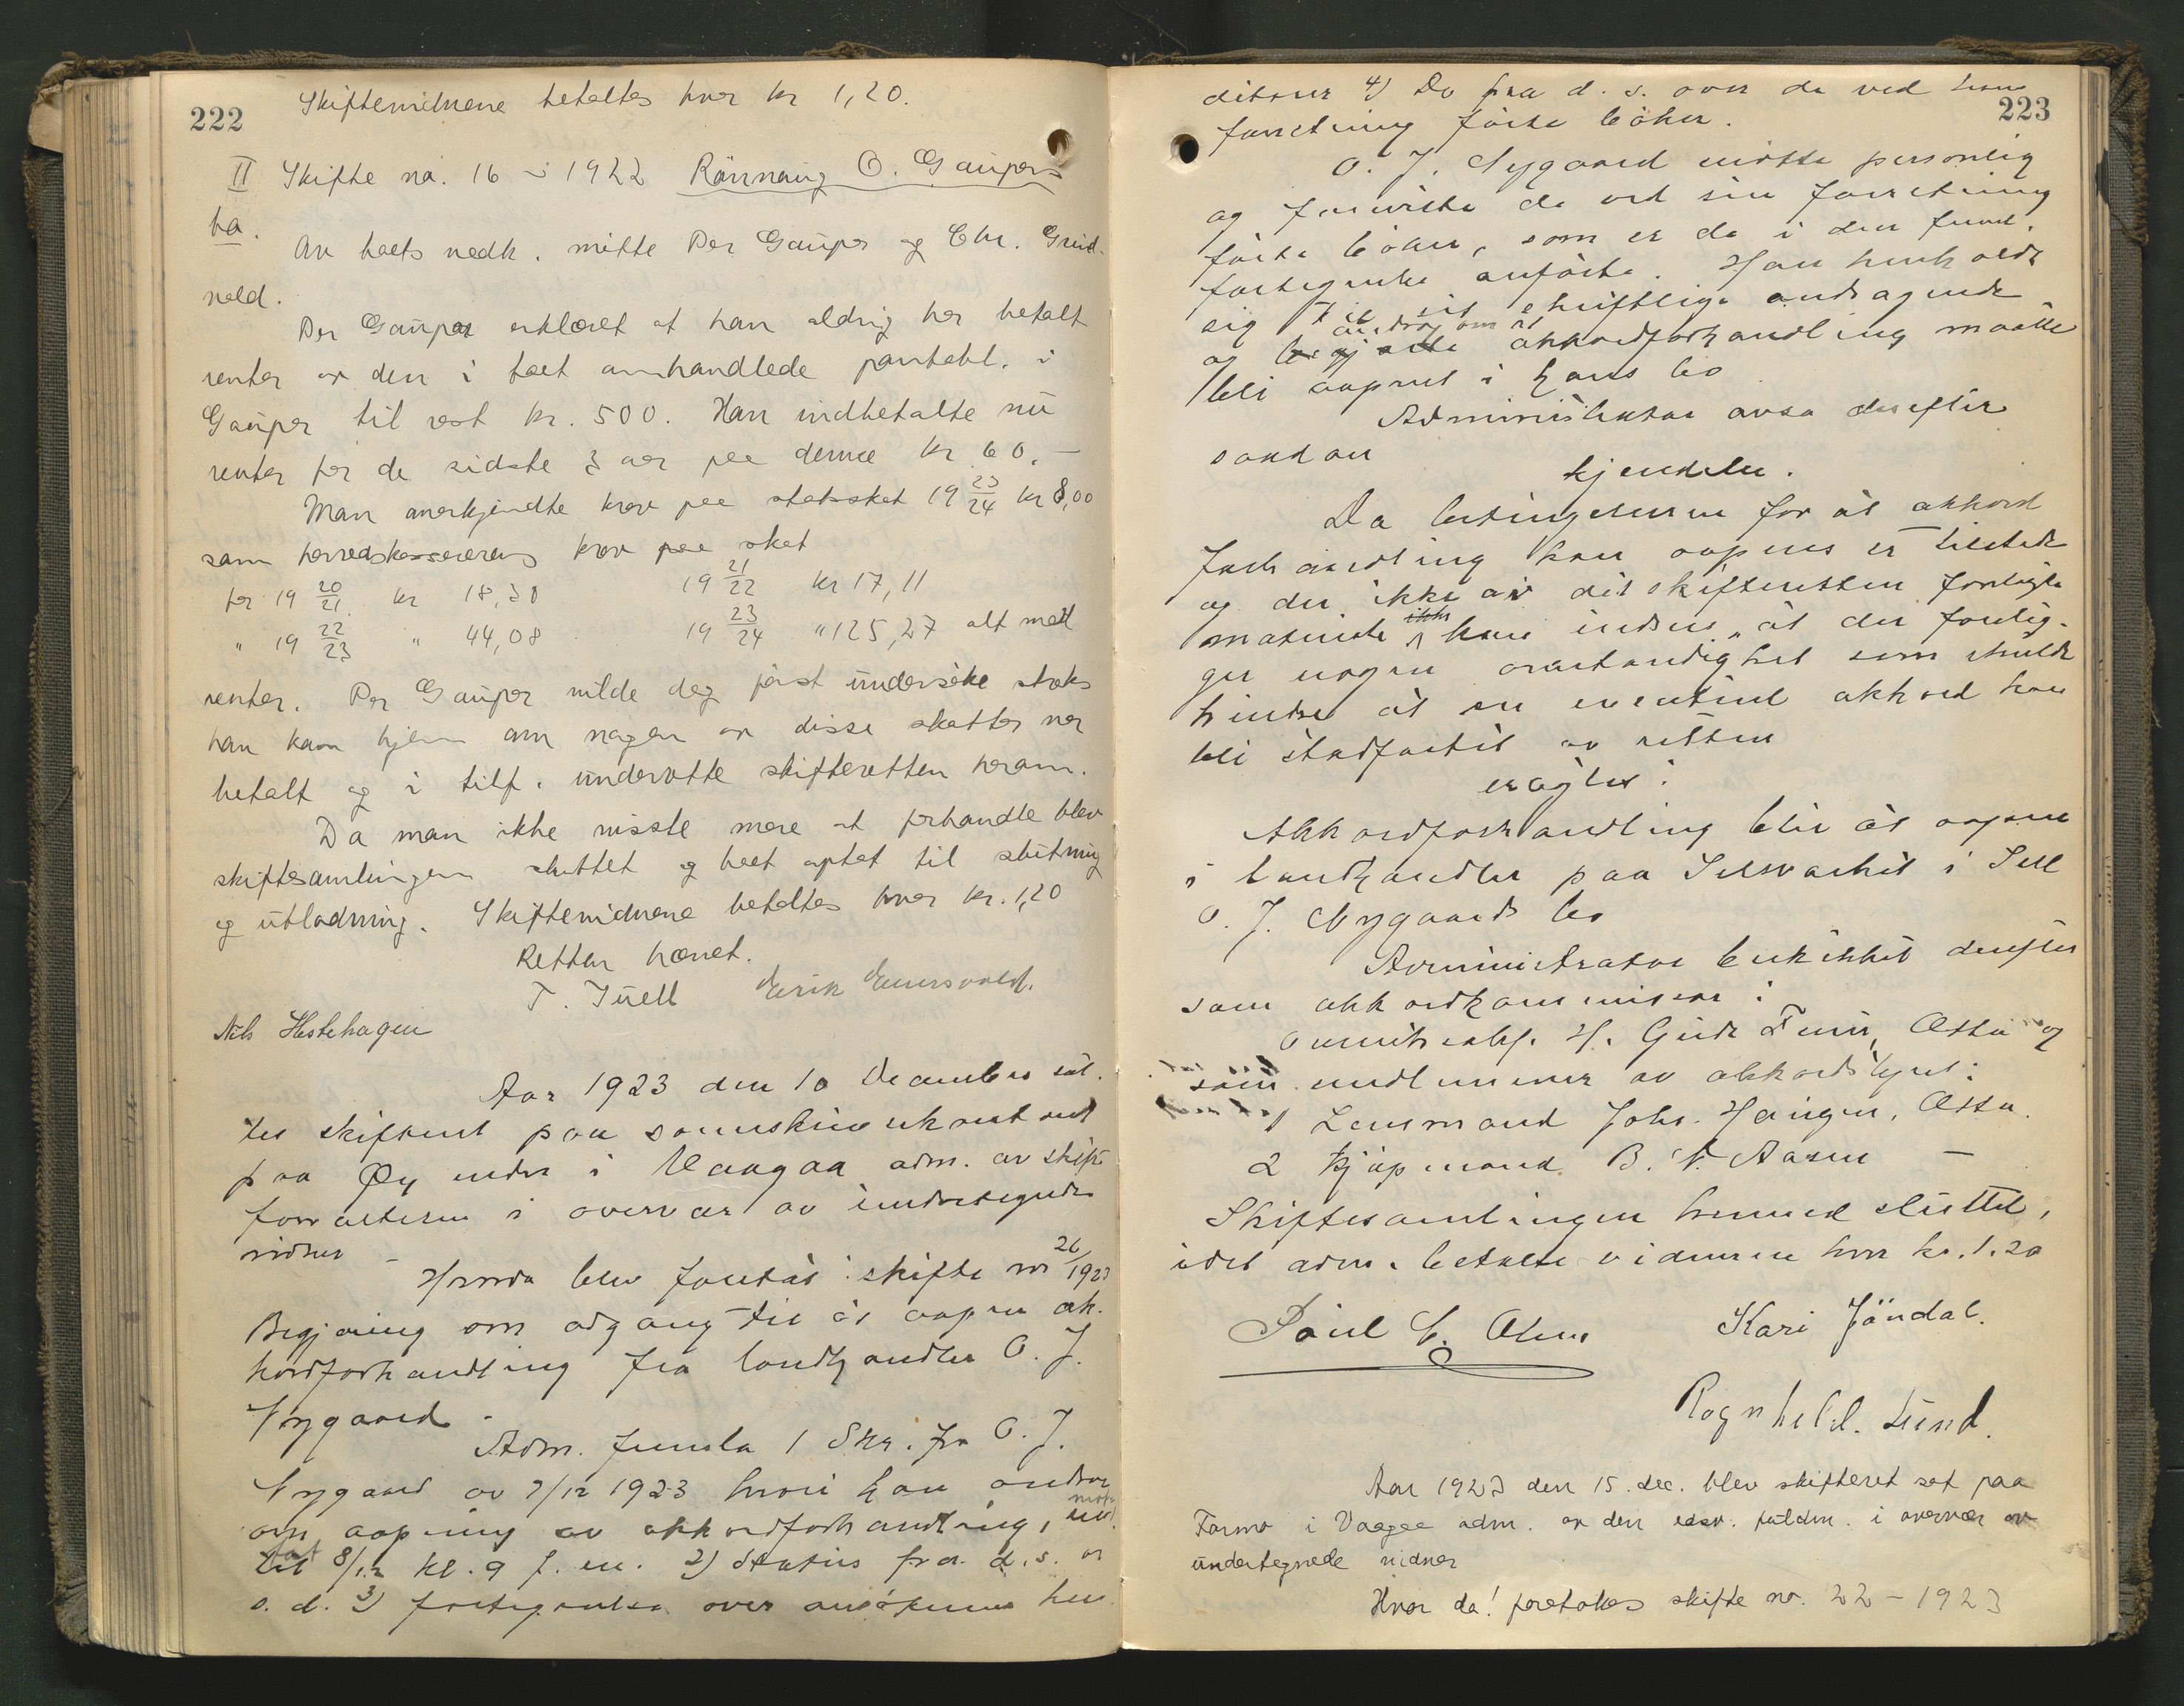 222
Skiftevidnene betaltes hver kr 1,20.
II Skifte no. 16 - 1922 Rönnaug O. Gaupers
bo.
Av boets vedk. mötte Per Gauper og Chr.
Per Gauper erklæret at han aldrig har betalt
renter av den i boet omhandlede panteobl. i
Gauper til rest kr. 500. Han indbetalte nu
renter for de sidste 3 aar paa denne kr 60.-
Man anerkjendte krav paa statsskat 19 23/24 kr 8,00
sam herredskassererens krav paa skat
for 19 20/21 kr 18,30 19 21/22 kr 17,11
" 19 22/23 " 44,08 19 23/24 " 125,27 alt med
renter. Per Gauper vilde dog först undersöke straks
han kom hjem om nogen av disse skatter var
betalt og i tilf. underrette skifteretten herom.
Da man ikke visste mere at forhandle blev
skiftesamlingen sluttet og boet optat til slutning
og utlodning. Skiftevidnene betaltes hver kr. 1,20
Retten hævet.
T. Juell Erik
Nils Hestehagen
Aar 1923 den 10 December sat-
tes skifteret paa sorenskriverkontoret
paa Öy indre i Vaagaa adm. av skifte
forvalteren i overvær av undertegnede
vidner -
Hvorda blev foretat: skifte no 26/1923
Begjæring om adgang til at aapne ak-
kordforhandling fra landhandler O. J.
Nygaard -
Adm. fremla 1 Skr. fra O. J.
Nygaard av 7/12 1923 hvori han andrar
om aapning av akkordforhandling,
8/12 kl. 9 f. m. 2) Status fra d. s. av
s. d. 3) fortegnelse over ansökerens kre-
223
ditorer 4) Do fra d. s. over de ved hans
forretning förte böker.
O. J. Nygaard mötte personlig
og foreviste de ved sin forretning
förte böker, som er de i den freml.
fortegnelse anförte. Han henholdt
sig til sit skriftlige andragende
androg om at
og begjærte akkordforhandling maatte
bli aapnet i hans bo
Administrator avsa derefter
saadan
kjendelse.
Da betingelserne for at akkord
forhandling kan aapnes er tilstede
og der ikke av det skifteretten forelagte
materiale ikke kan indsees, at der forelig-
ger nogen omstændighet som skulde
hindre at en eventuel akkord kan
bli stadfæstet av retten
eragtes:
Akkordforhandling blir at aapne
i landhandler paa Selsverket i Sell
O. J. Nygaards bo
Administrator beskikket derefter
som akkordkommissær:
O.rettssakf. H. Gude Otta og
som medlemmer av akkordstyret:
1 Lensmand Johs. Haugen, Otta.
2 Kjöpmand B. N. Aasen -
Skiftesamlingen hermed sluttet,
idet adm. betalte vidnerne hver kr. 1.20
Paul E. Olsen Kari Jöndal.
Ragnhild. Lund.
Aar 1923 den 15. dec. blev skifteret sat paa
Formo i Vaagaa adm. av den edsv. fuldm. i overvær av
undertegnede vidner
Hvor da! foretokes skifte no. 22 - 1923